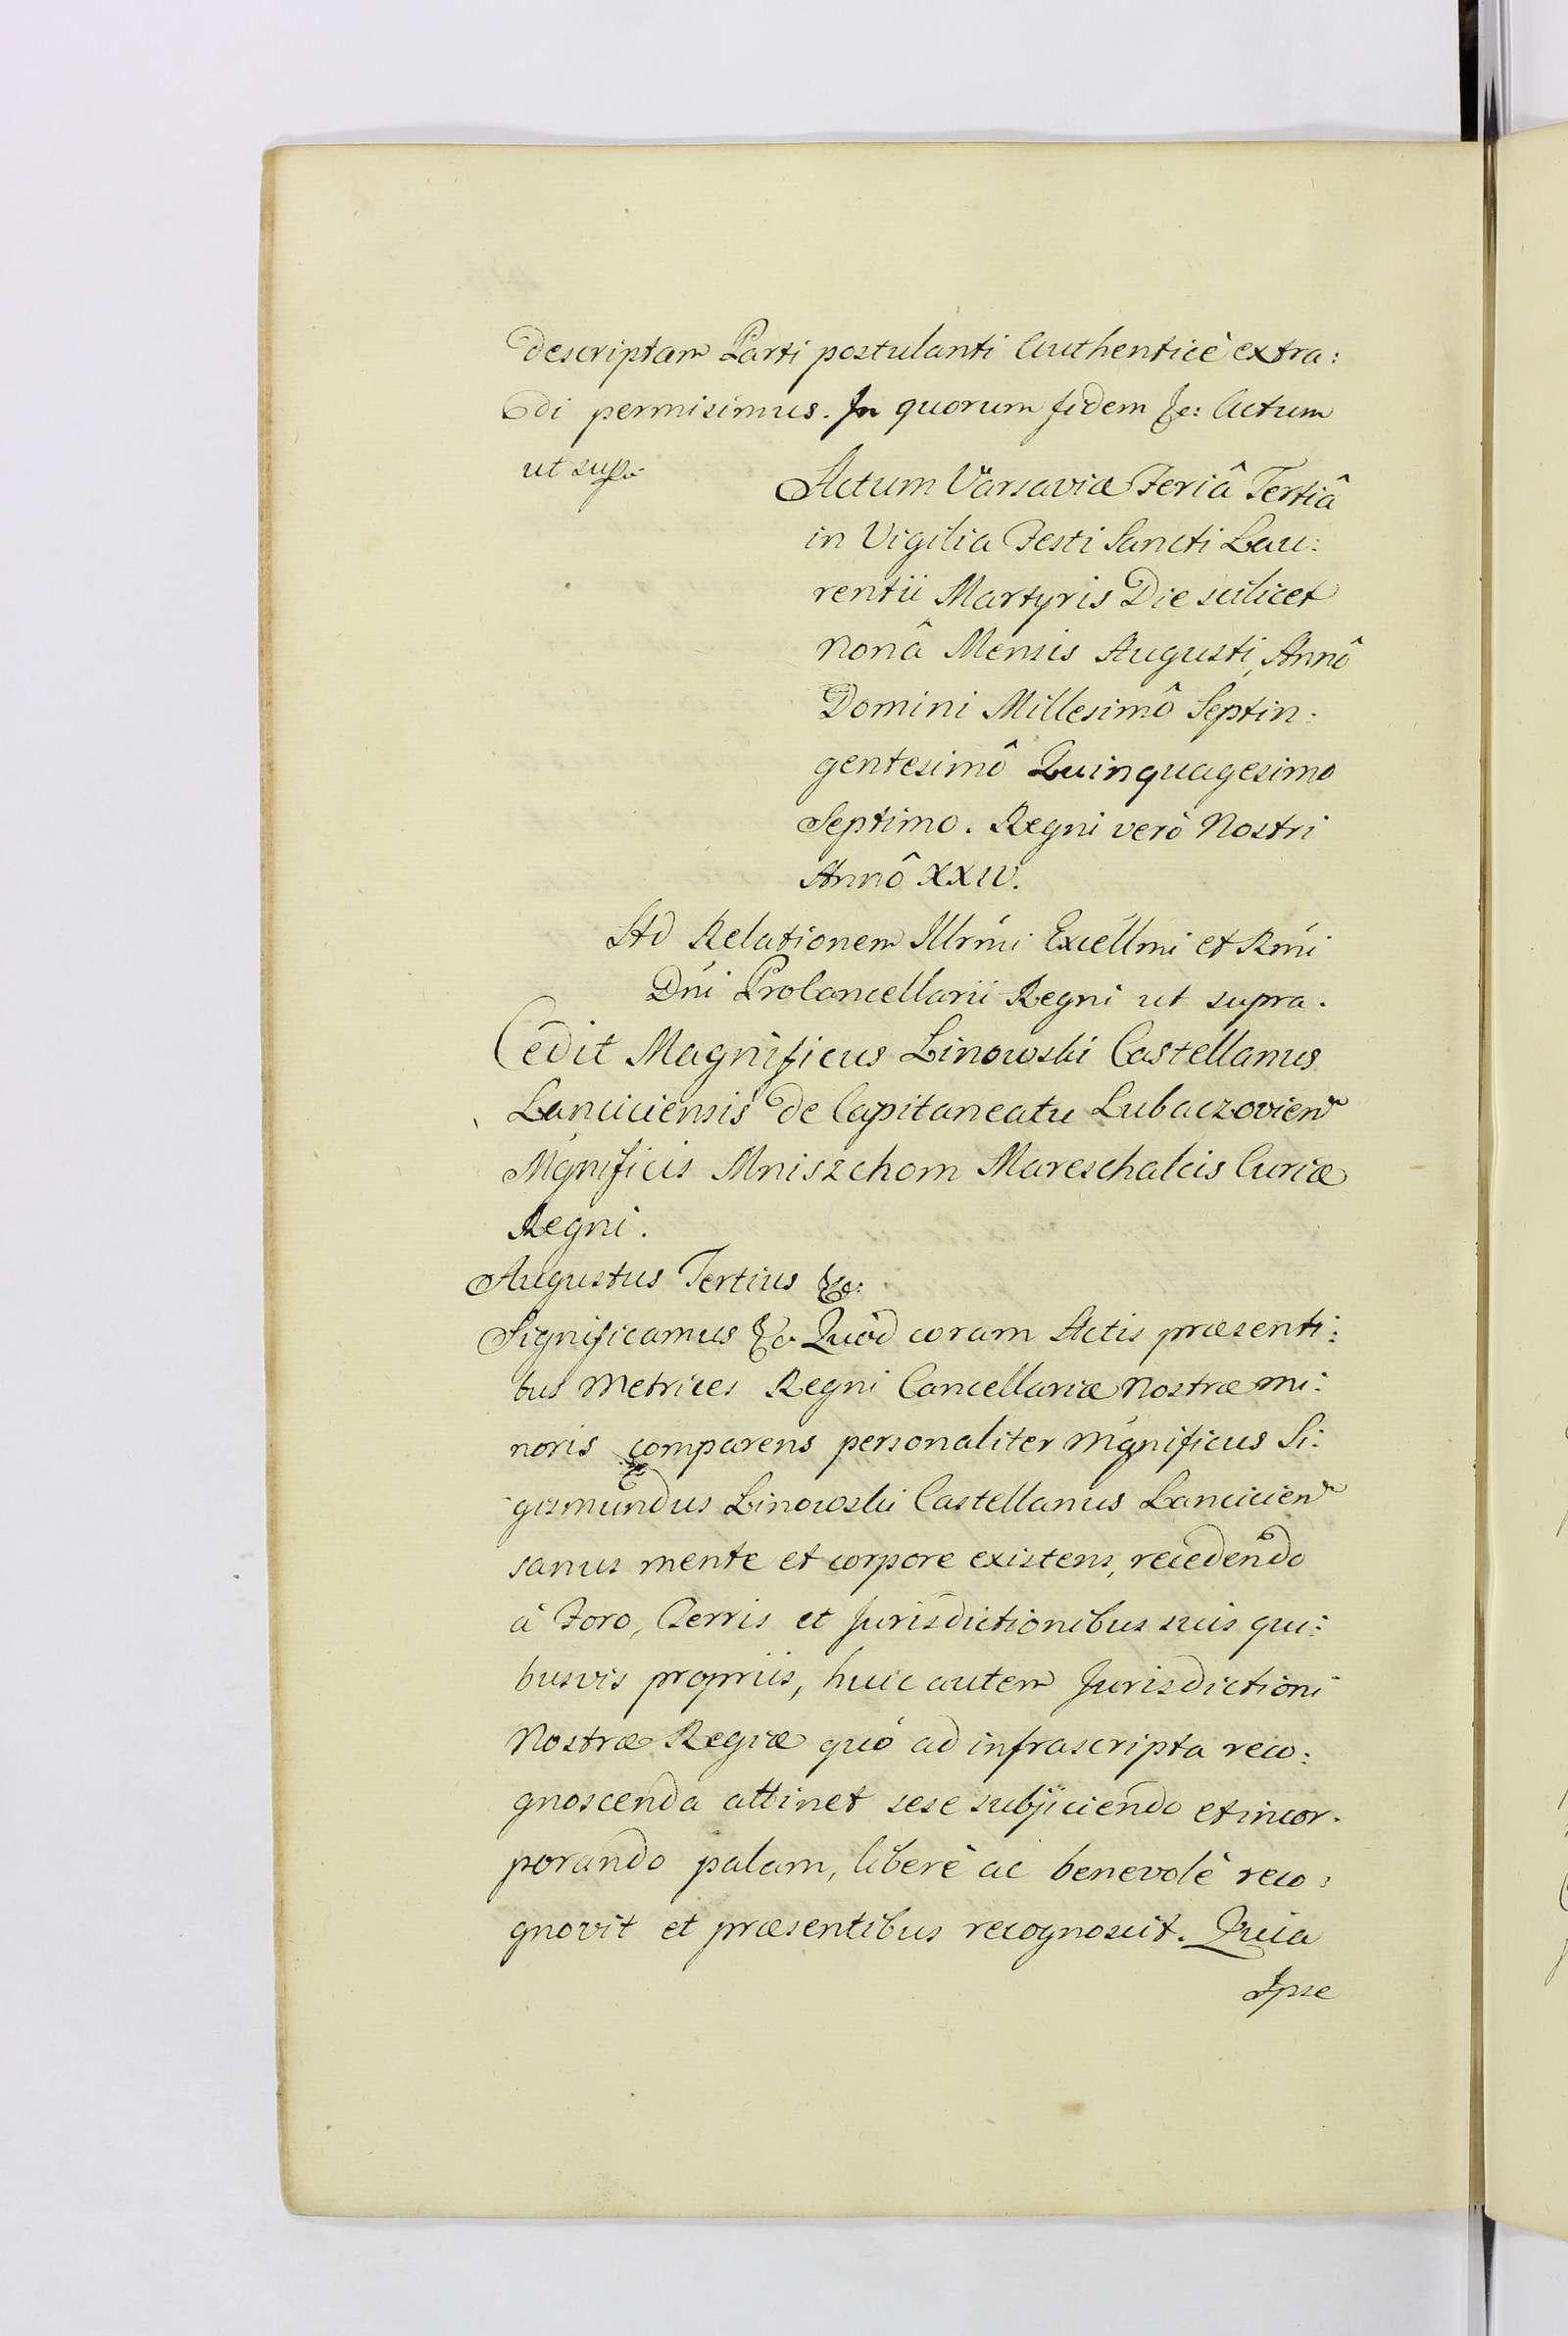 descriptam Parti postulanti Authenticè extra:
di permisimus. In quorum fidem &c: Actum
ut sup.
Actum Varsaviæ Feriâ Tertiâ
in Vigilia Festi Sancti Lau:
rentii Martyris Die scilicet
Nonâ Mensis Augusti, Annô
Domini Millesimô Septin:
gentesimô Quinquagesimo
Septimo. Regni verò Nostri
Annô XXIV.
Ad Relationem Illrmi Excellmi et Rmi
Dni ProCancellarii Regni ut supra.
Cedit Magnificus Linowski Castellanus
Lanciciensis de Capitaneatu Lubaczovien
Mgnificis Mniszchom Mareschalcis Curiæ
Regni.
Augustus Tertius &c:
Significamus &c. Quod coram Actis præsenti:
bus Metrices Regni Cancellariæ Nostræ Mi:
noris comparens personaliter Mgnificus Si:
gismundus Linowski Castellanus Lancicien
sanus mente et corpore existens, recedendo
à Foro, Terris et Jurisdictionibus suis qui:
busvis propriis, huic autem Jurisdictioni
Nostræ Regiæ quó ad infrascripta reco:
gnoscenda attinet sese subjiciendo et incor:
porando palam, liberè ac benevolè reco:
gnovit et præsentibus recognoscit. Quia
Ipse